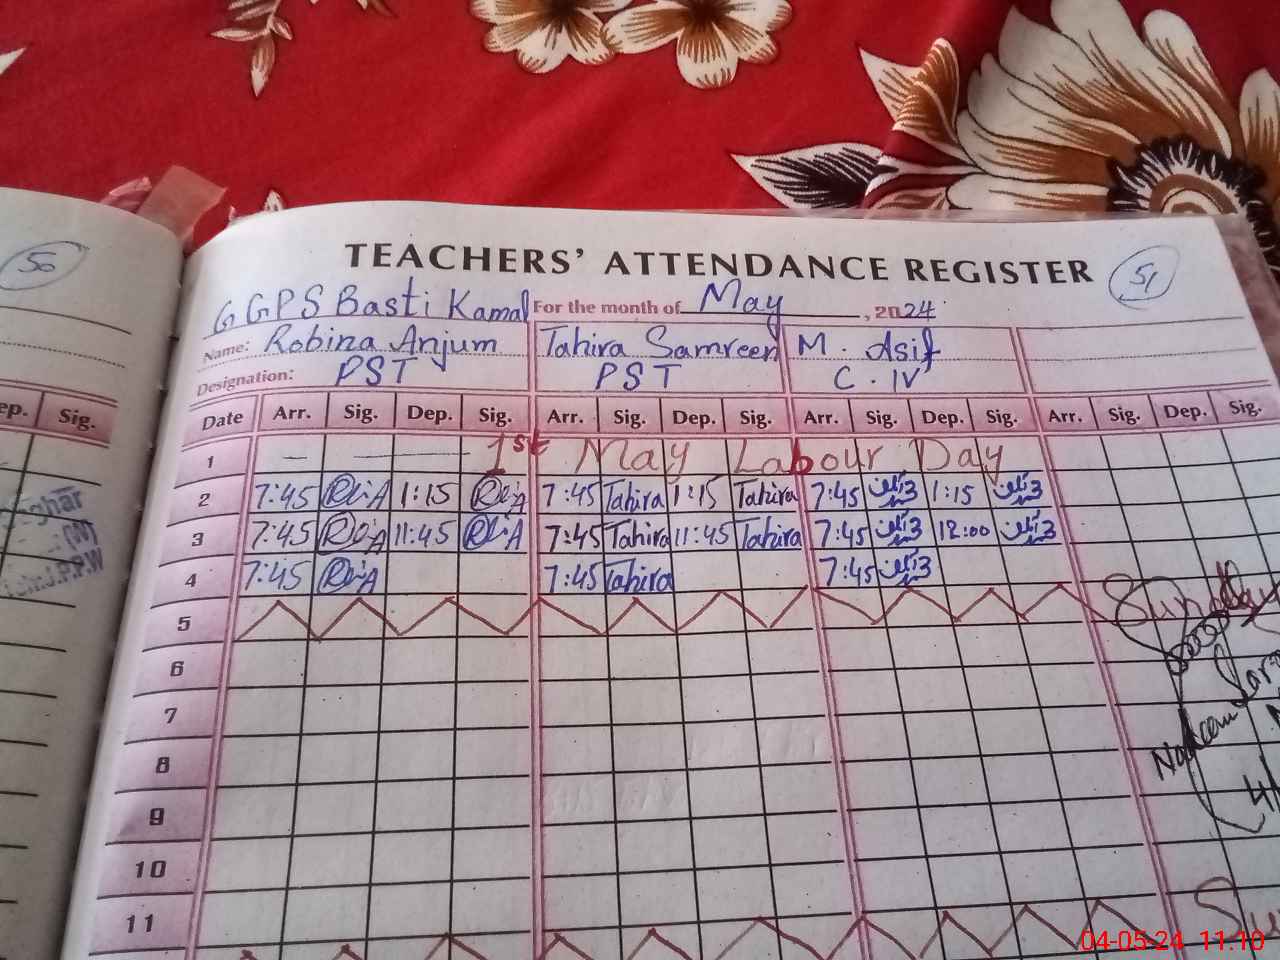 50
ep. Sig.
TEACHERS' ATTENDANCE REGISTER
51
GGPS Basti Kamal For the month of May, 2024
Name: Robina Anjum Tahira Samreen M. Asif
Designation: PST PST C.IV
Date Arr. Sig. Dep. Sig. Arr. Sig. Dep. Sig. Arr. Sig. Dep. Sig. Arr. Sig. Dep. Sig.
1 1st May Labour Day
2 7:45 1:15 7:45 Tahira 1:15 Tahira 7:45 1:15
3 7:45 11:45 7:45 Tahira 11:45 Tahira 7:45 12:00
4 7:45 7:45 Tahira 7:45
5 Sunday
6
7
8
9
10
11
04-05-24 11:10